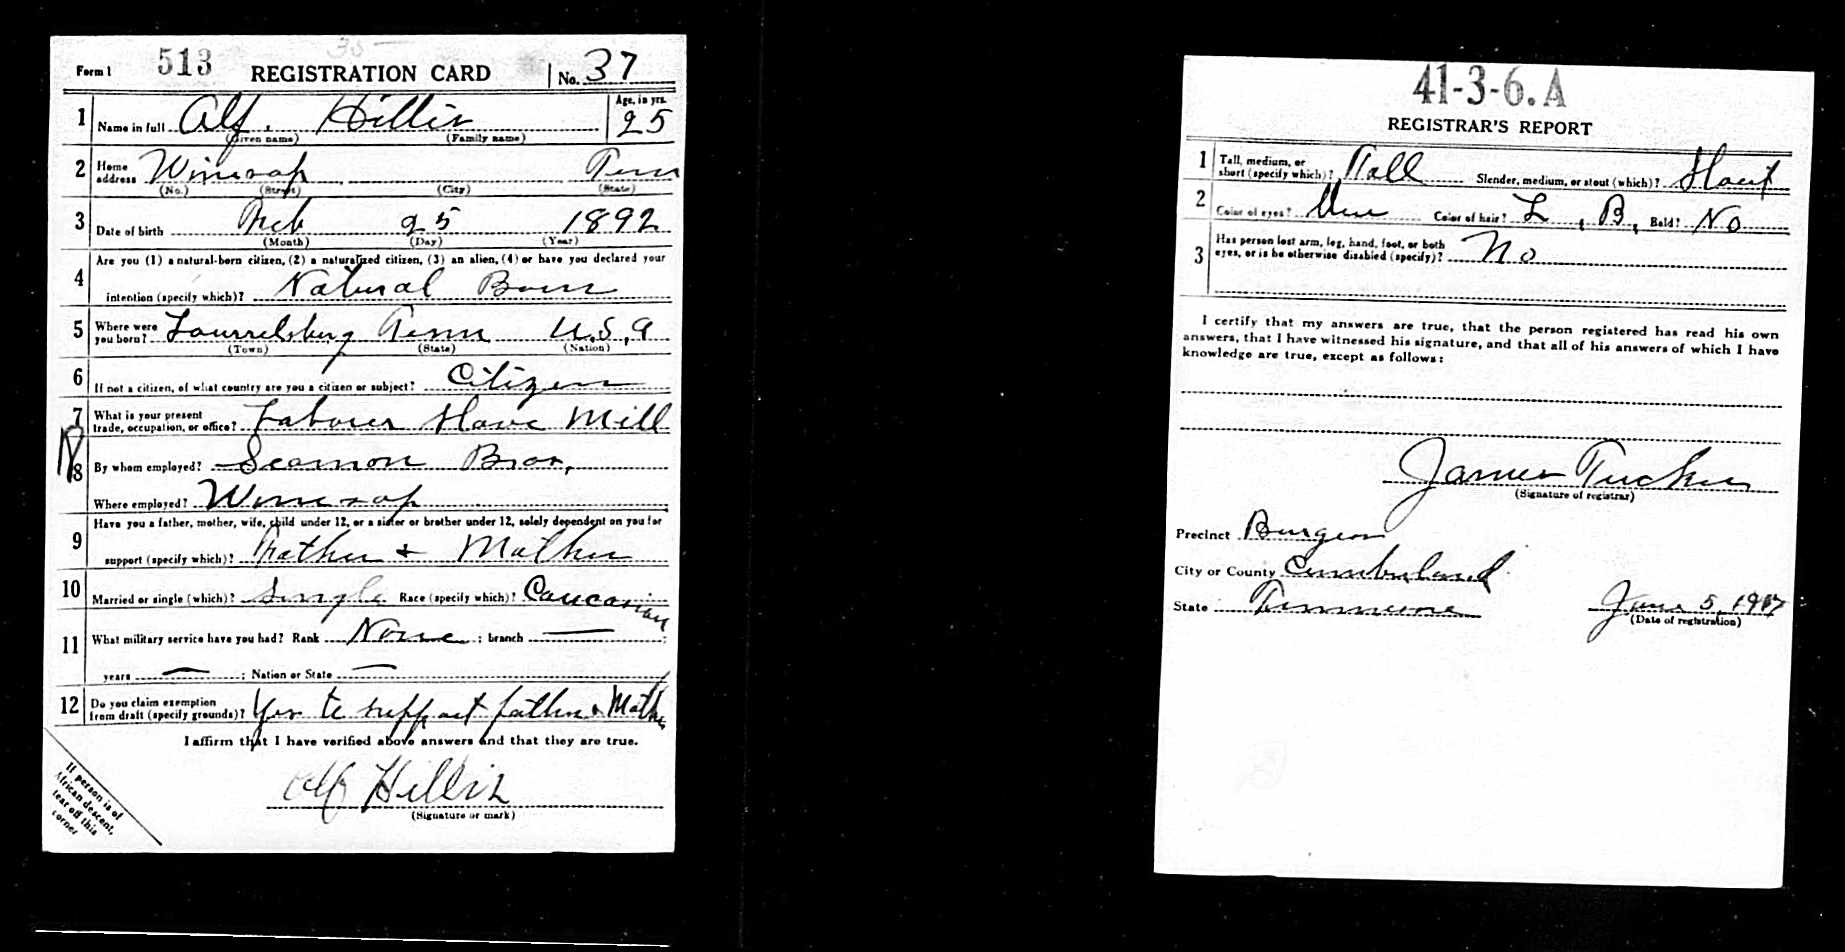 Form 1 513 REGISTRATION CARD No. 37
1 Name in full Alf. Hillis Age, in yrs. 25
(Given name) (Family name)
2 Home address Winesap Tenn
(No.) (Street) (City) (State)
3 Date of birth Feb 25 1892
(Month) (Day) (Year)
4 Are you (1) a natural-born citizen, (2) a naturalized citizen, (3) an alien, (4) or have you declared your
intention (specify which)? Natural Born
5 Where were you born? Laurrelsburg Tenn U.S.A
(Town) (State) (Nation)
6 If not a citizen, of what country are you a citizen or subject? Citizen
7 What is your present trade, occupation, or office? Laborer Stave Mill
8 By whom employed? Seamon Bros,
Where employed? Winesap
9 Have you a father, mother, wife, child under 12, or a sister or brother under 12, solely dependent on you for
support (specify which)? Father + Mother
10 Married or single (which)? Single Race (specify which)? Caucasian
11 What military service have you had? Rank None ; branch — ;
years — ; Nation or State —
12 Do you claim exemption from draft (specify grounds)? Yes to support father & Mother
I affirm that I have verified above answers and that they are true.
Alf Hillis
(Signature or mark)
If person is of
African descent,
tear off this
corner
41-3-6.A
REGISTRAR'S REPORT
1 Tall, medium, or short (specify which)? Tall Slender, medium, or stout (which)? Stout
2 Color of eyes? Blue Color of hair? L, B, Bald? No
3 Has person lost arm, leg, hand, foot, or both
eyes, or is he otherwise disabled (specify)? No
I certify that my answers are true, that the person registered has read his own
answers, that I have witnessed his signature, and that all of his answers of which I have
knowledge are true, except as follows:
James Tucker
(Signature of registrar)
Precinct Burgess
City or County Cumberland
State Tennessee June 5, 1917
(Date of registration)